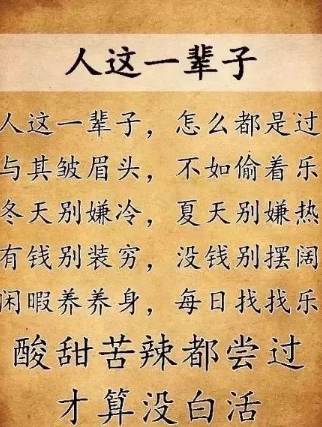 人这一辈子
人这一辈子，怎么都是过
与其皱眉头，不如偷着乐
冬天别嫌冷，夏天别嫌热
有钱别装穷，没钱别摆阔
闲暇养养身，每日找找乐
酸甜苦辣都尝过
才算没白活